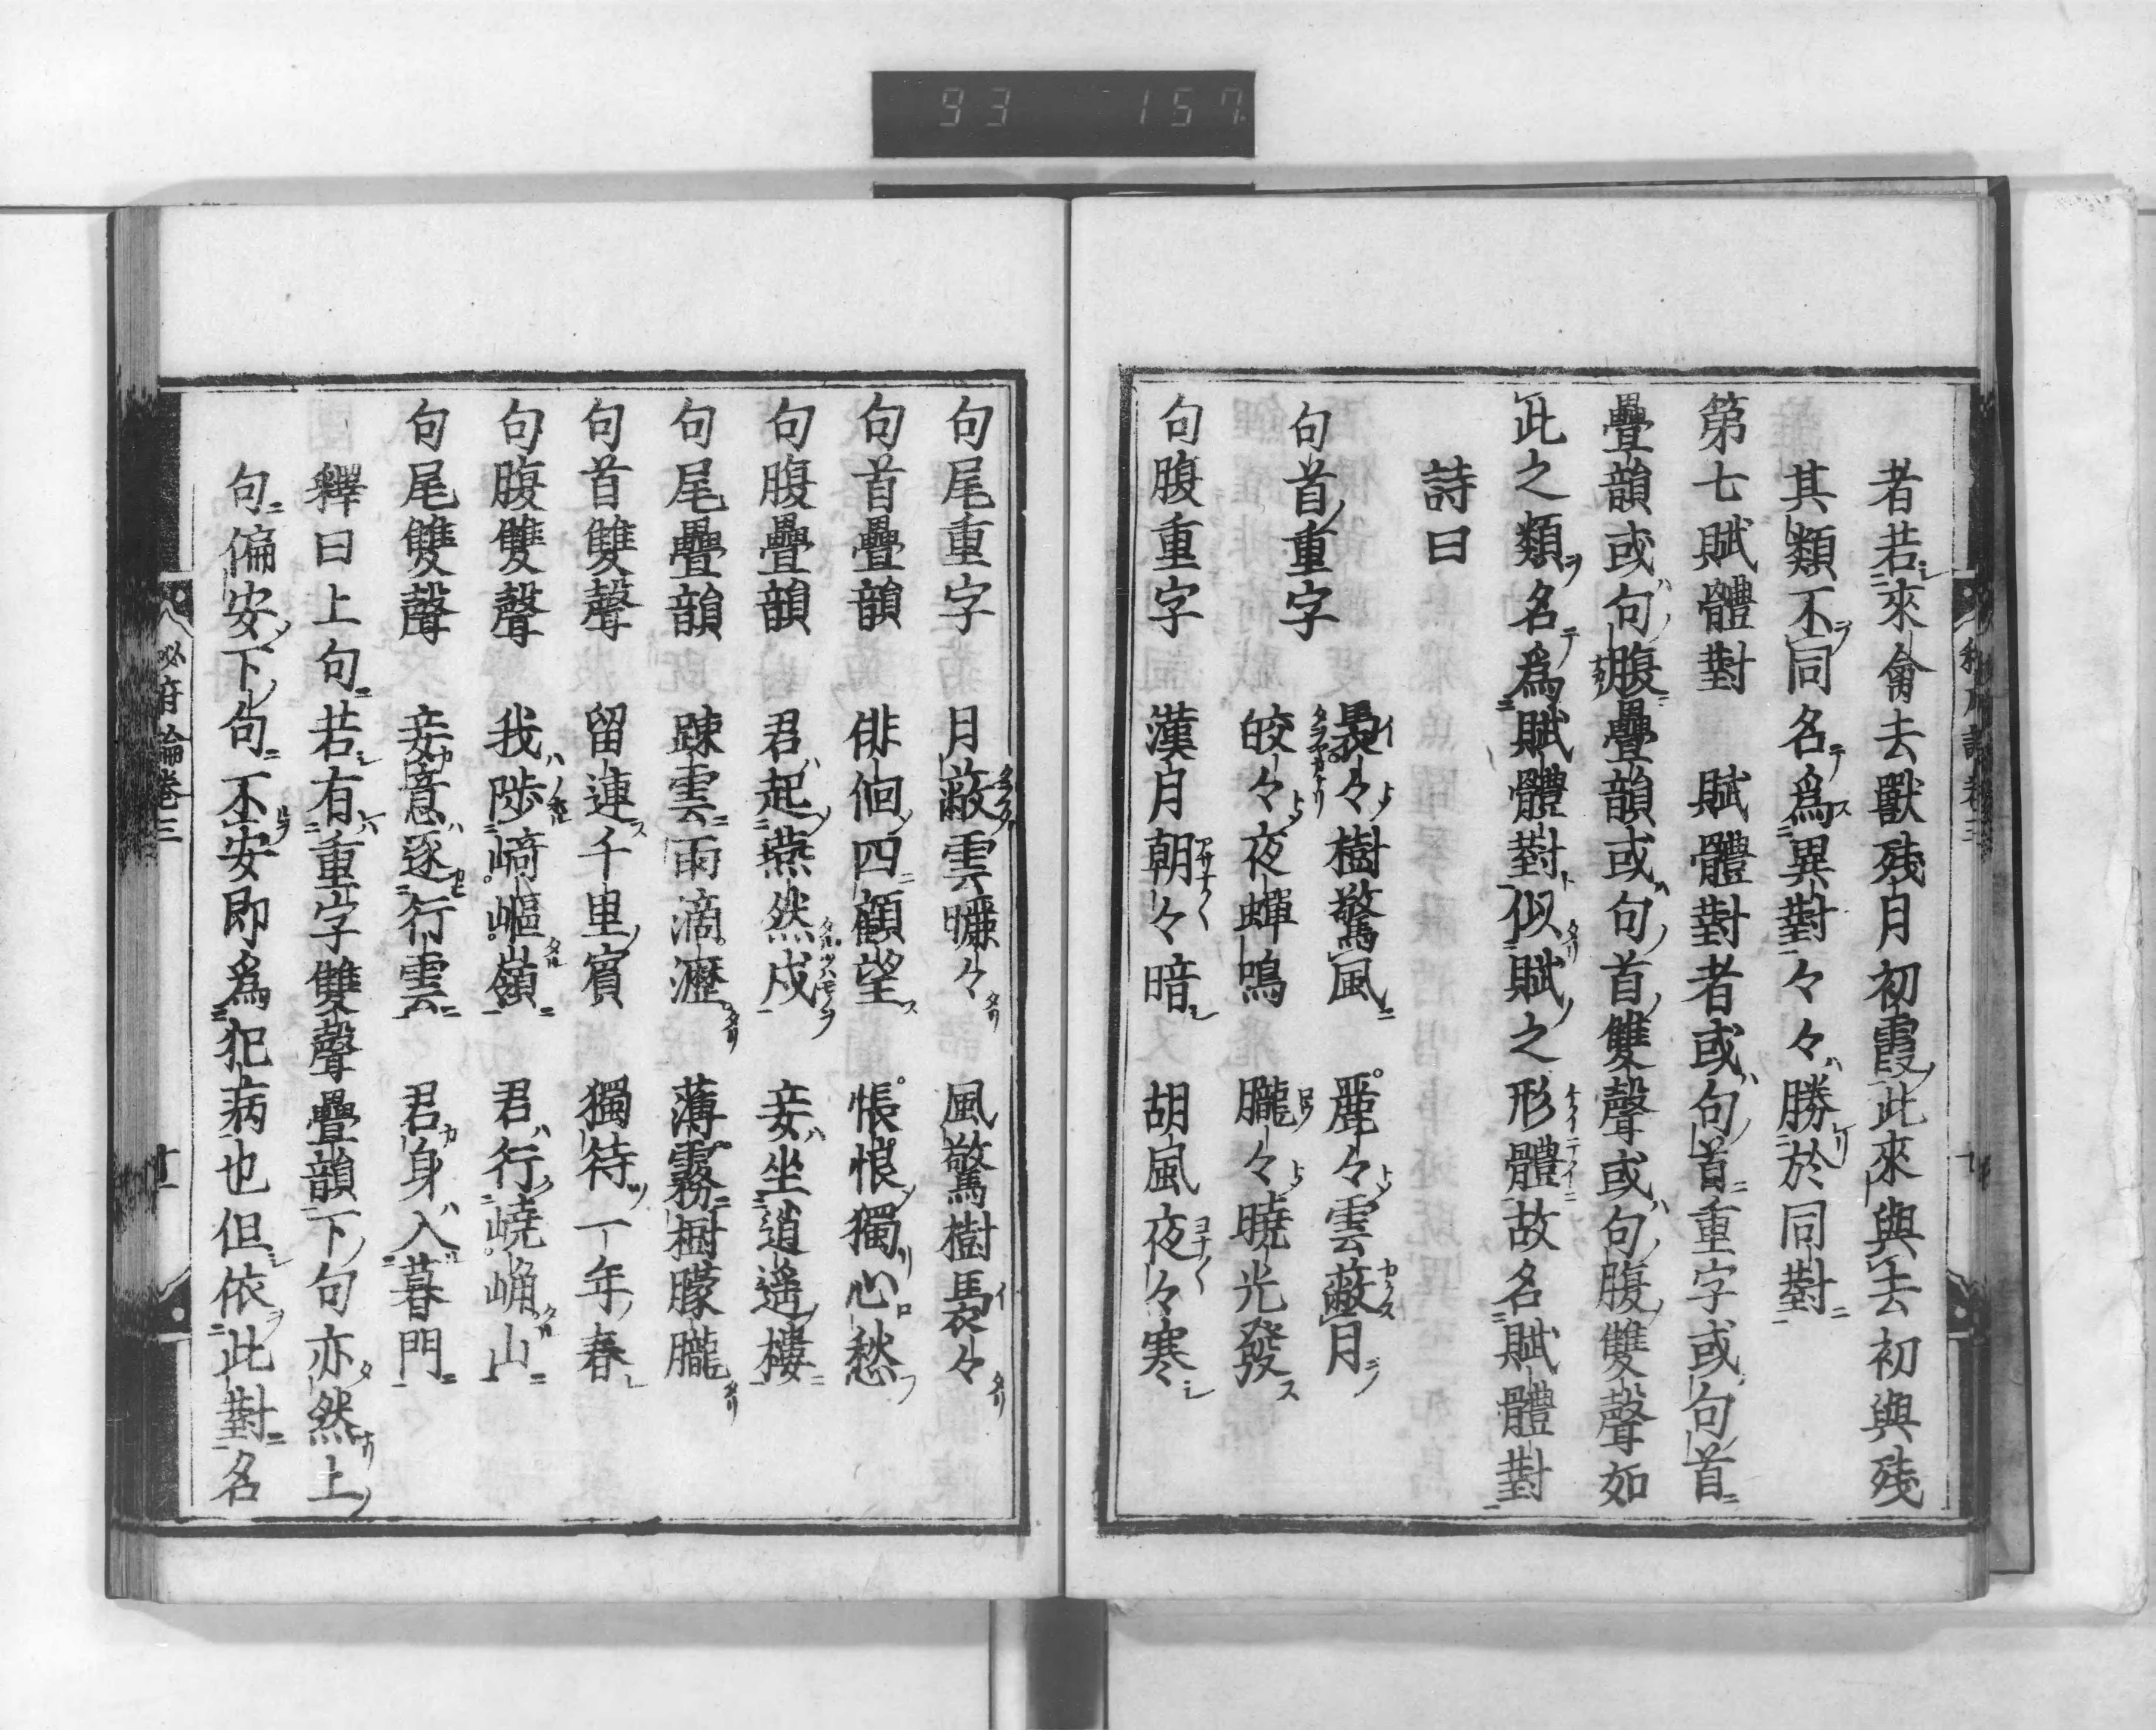 93 157
者若來禽去獸殘月初霞此來與去初與殘
其類不同名爲異對々々勝於同對
第七賦體對 賦體對者或句首重字或句首
疊韻或句腹疊韻或句首雙聲或句腹雙聲如
此之類名爲賦體對似賦之形體故名賦體對
詩曰
句首重字 褭々樹驚風 麗々雲蔽月
皎々夜蟬鳴 朧々曉光發
句腹重字 漢月朝々暗 胡風夜々寒
句尾重字 月蔽雲曬々 風驚樹褭々
句首疊韻 俳佪四顧望 悵悢獨心愁
句腹疊韻 君起燕然戍 妾坐逍遙樓
句尾疊韻 踈雲雨滴瀝 薄霧樹朦朧
句首雙聲 留連千里賓 獨待一年春
句腹雙聲 我陟崎嶇嶺 君行嶢崅山
句尾雙聲 妾意逐行雲 君身入暮門
釋曰上句若有重字雙聲疊韻下句亦然上
句偏安下句不安即爲犯病也但依此對名
祕府論卷三 十一